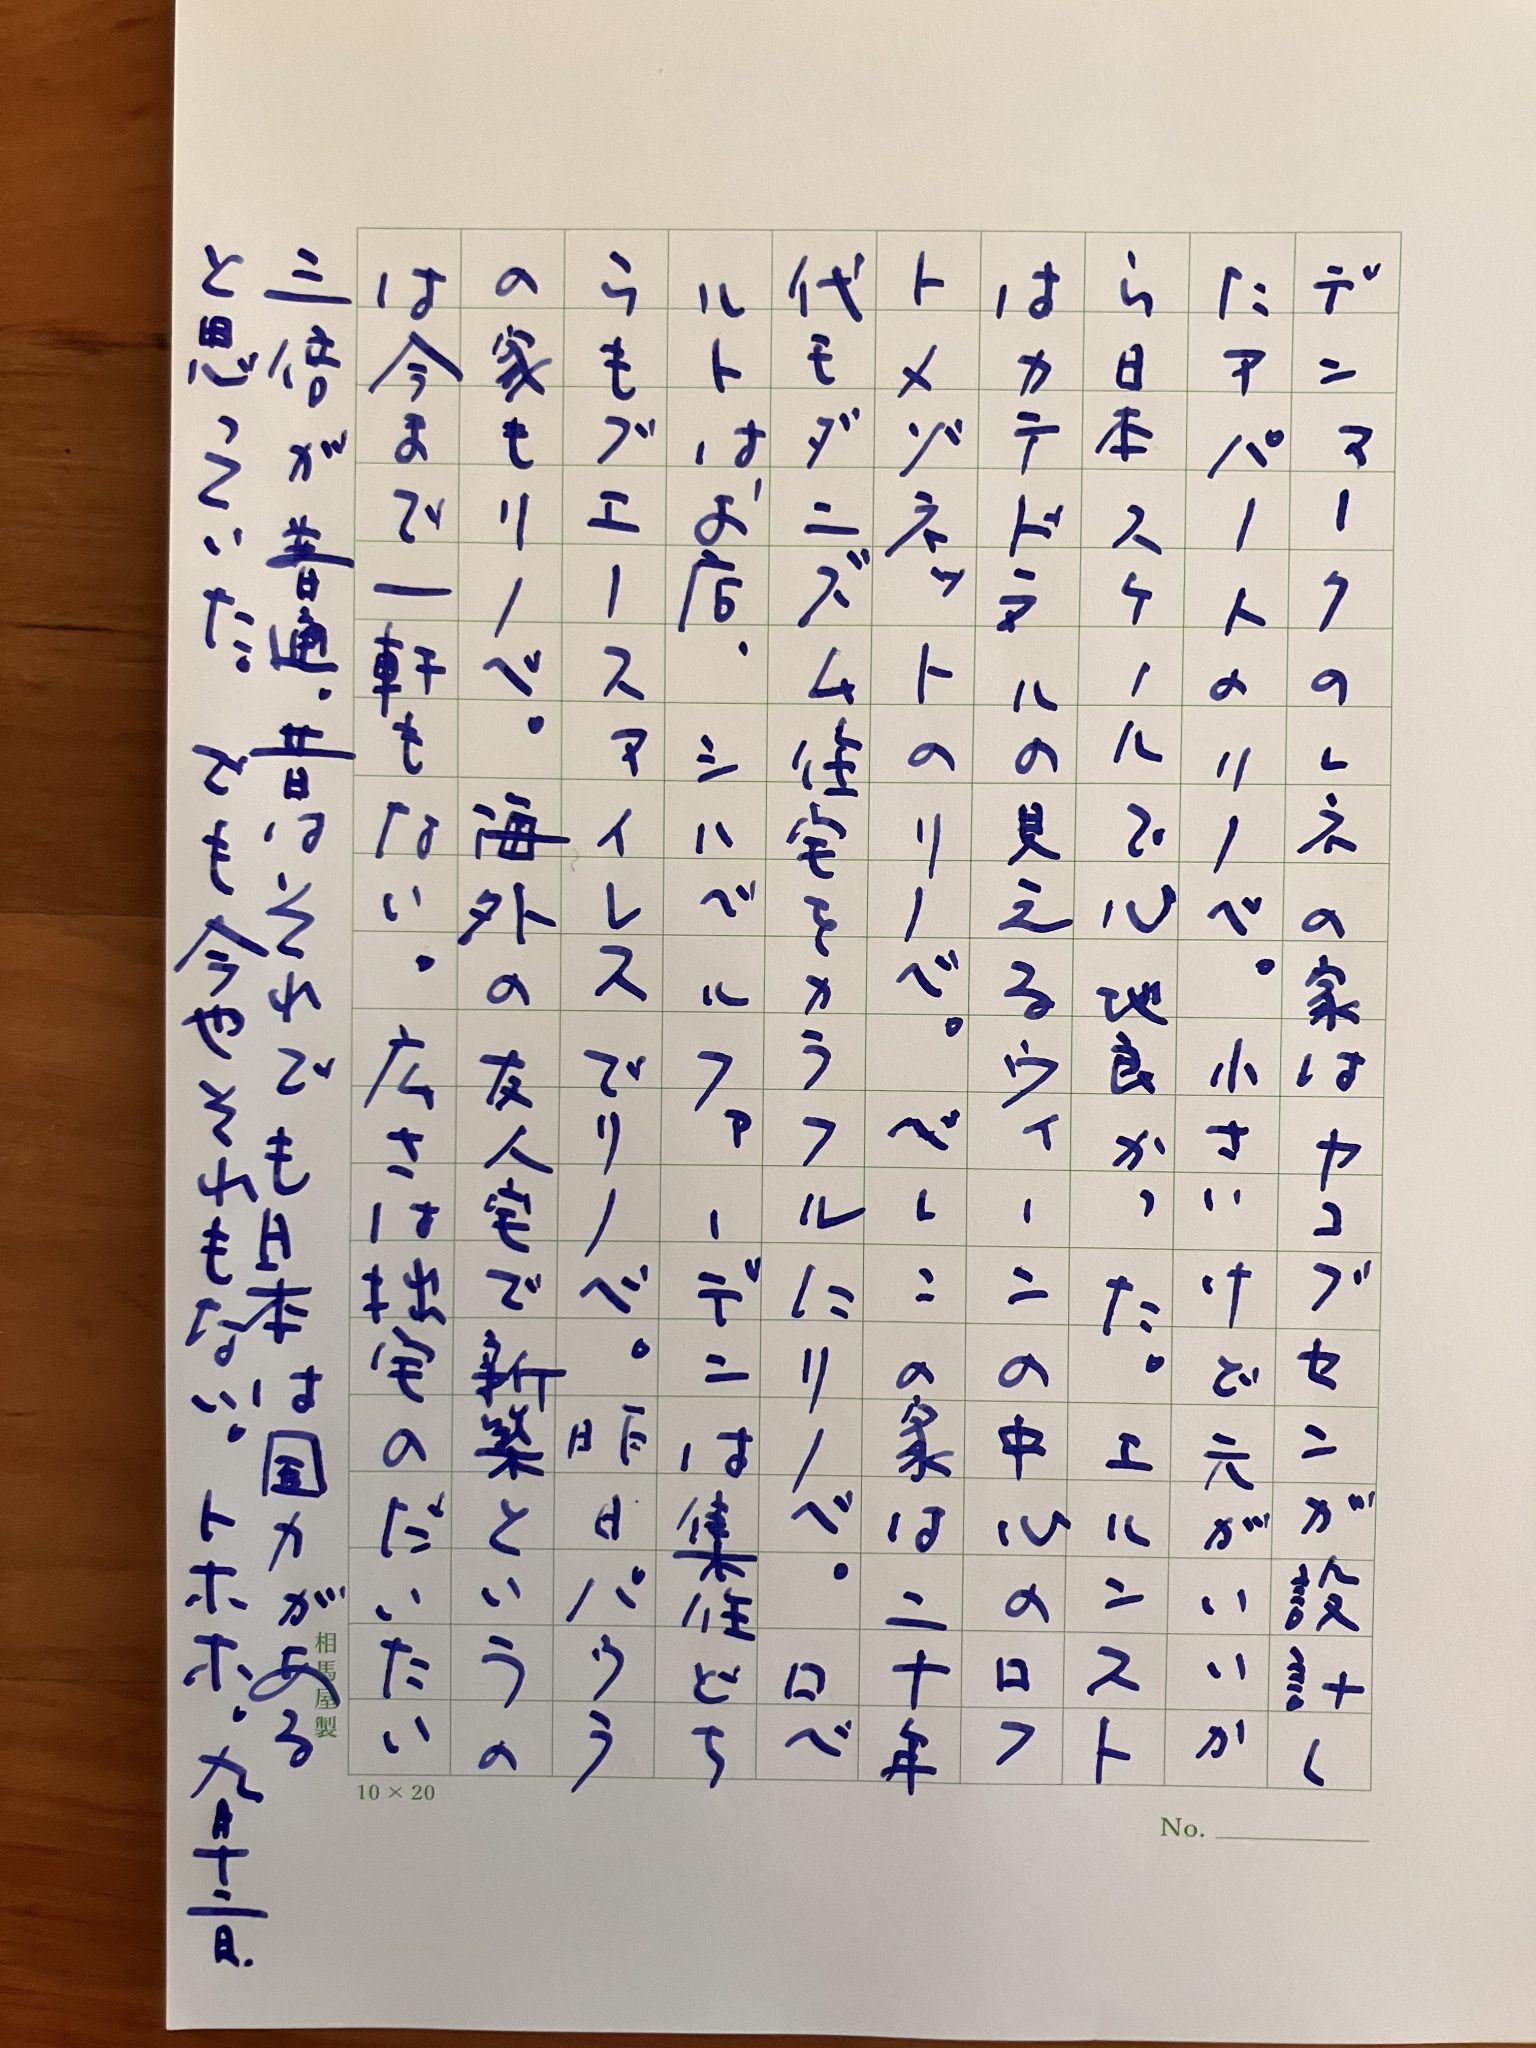 デンマークのレネの家はヤコブセンが設計し
たアパートのリノベ。小さいけど元がいいか
ら日本スケールで心地良かった。エルンスト
はカテドラルの見えるウィーンの中心のロフ
トメゾネットのリノベ。ベレニの家は二十年
代モダニズム住宅をカラフルにリノベ。ロベ
ルトはお店、シハベルファーデニは集住どち
らもブエースアイレスでリノベ。昨日パウラ
の家もリノベ。海外の友人宅で新築というの
は今まで一軒もない。広さは拙宅のだいたい
三倍が普通。昔はそれでも日本は国力がある
と思っていた。でも今やそれもない。トホホ。九月十二日.
相馬屋製
10 × 20
No.